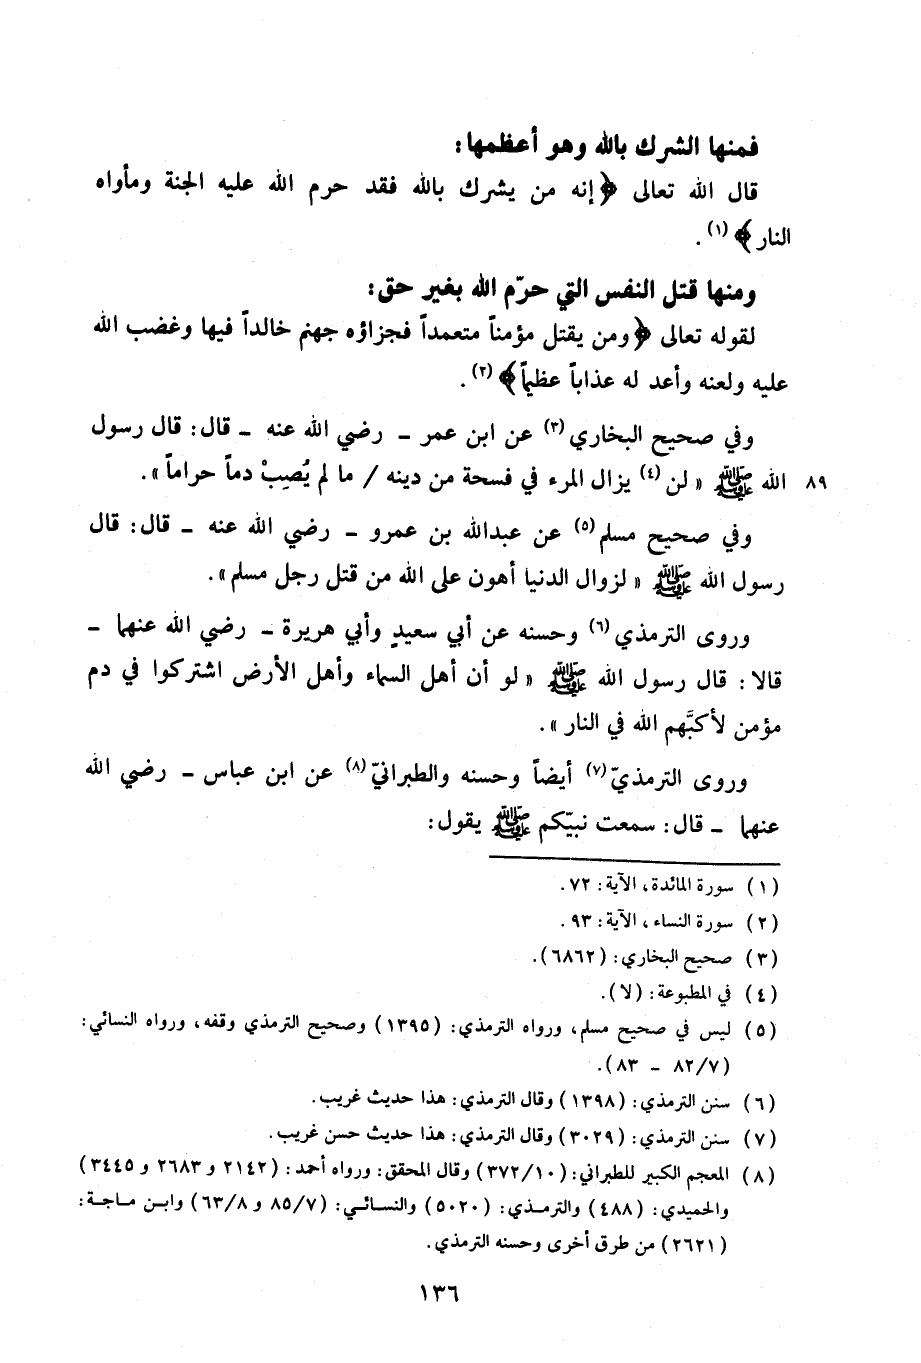 فمنها الشرك بالله وهو أعظمها:
قال الله تعالى ﴿إنه من يشرك بالله فقد حرم الله عليه الجنة ومأواه
النار﴾(١).
ومنها قتل النفس التي حرّم الله بغير حق:
لقوله تعالى ﴿ومن يقتل مؤمناً متعمداً فجزاؤه جهنم خالداً فيها وغضب الله
عليه ولعنه وأعد له عذاباً عظيماً﴾(٢).
وفي صحيح البخاري(٣) عن ابن عمر ـ رضي الله عنه ـ قال: قال رسول
٨٩ الله ﷺ «لن(٤) يزال المرء في فسحة من دينه / ما لم يُصِبْ دماً حراماً».
وفي صحيح مسلم(٥) عن عبدالله بن عمرو ـ رضي الله عنه ـ قال: قال
رسول الله ﷺ «لزوال الدنيا أهون على الله من قتل رجل مسلم».
وروى الترمذي(٦) وحسنه عن أبي سعيدٍ وأبي هريرة ـ رضي الله عنهما ـ
قالا: قال رسول الله ﷺ «لو أن أهل السماء وأهل الأرض اشتركوا في دم
مؤمن لأكبَّهم الله في النار».
وروى الترمذيّ(٧) أيضاً وحسنه والطبرانيّ(٨) عن ابن عباس ـ رضي الله
عنهما ـ قال: سمعت نبيّكم ﷺ يقول:
(١) سورة المائدة، الآية: ٧٢.
(٢) سورة النساء، الآية: ٩٣.
(٣) صحيح البخاري: (٦٨٦٢).
(٤) في المطبوعة: (لا).
(٥) ليس في صحيح مسلم، ورواه الترمذي: (١٣٩٥) وصحيح الترمذي وقفه، ورواه النسائي:
(٨٢/٧ ـ ٨٣).
(٦) سنن الترمذي: (١٣٩٨) وقال الترمذي: هذا حديث غريب.
(٧) سنن الترمذي: (٣٠٢٩) وقال الترمذي: هذا حديث حسن غريب.
(٨) المعجم الكبير للطبراني: (٣٧٢/١٠) وقال المحقق: ورواه أحمد: (٢١٤٢ و ٢٦٨٣ و ٣٤٤٥)
والحميدي: (٤٨٨) والترمذي: (٥٠٢٠) والنسائي: (٨٥/٧ و ٦٣/٨) وابن ماجة:
(٢٦٢١) من طرق أخرى وحسنه الترمذي.
١٣٦